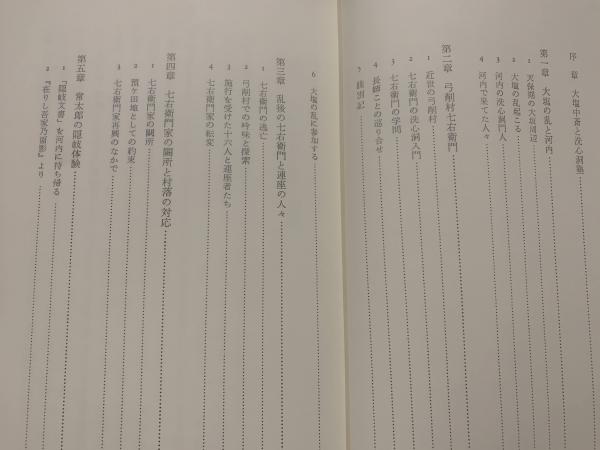 序　章　大塩中斎と洗心洞塾
第一章　大塩の乱と河内
1　天保期の大坂周辺
2　大塩の乱起こる
3　河内の洗心洞門人
4　河内で果てた人々
第二章　弓削村七右衛門
1　近世の弓削村
2　七右衛門の洗心洞入門
3　七右衛門の学問
4　長姉ことの巡り合せ
5
6　大塩の乱に参加する
第三章　乱後の七右衛門と連座の人々
1　七右衛門の逃亡
2　弓削村での吟味と探索
3　施行を受けた十六人と連座者たち
4　七右衛門家の転変
第四章　七右衛門家の闕所と村落の対応
1　七右衛門家の闕所
2　預ケ田地としての約束
3　七右衛門家再興のなかで
第五章　常太郎の隠岐体験
1　「隠岐文書」を河内に持ち帰る
2　『在りし吾家乃面影』より